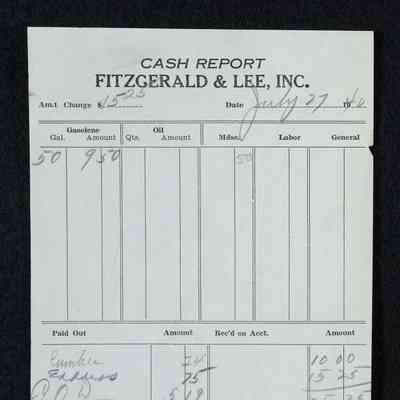 CASH REPORT
FITZGERALD & LEE, INC.
Am.t Change $ 15 25 Date July 27 1940
Gasolene Oil
Gal. Amount Qts. Amount Mdse. Labor General
50 9 50 50
Paid Out Amount Rec'd on Acct. Amount
74 10 00
Express 75 15 25
C.O.D. 5 19 25 25